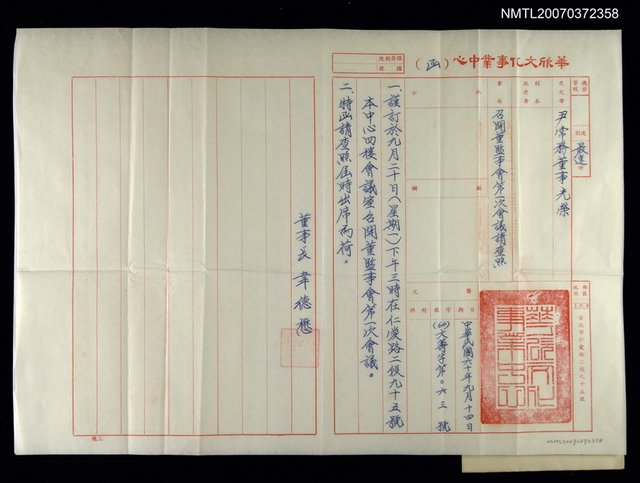 NMTL20070372358
華欣文化事業中心（函）
保存期限
檔號
受文者
尹常務董事光榮
速別
最速件
副本
收受者
事由
召開董監事會第一次會議請查照
批示
擬辦
發文
日期
字號
附件
中華民國六十年九月十四日
(60)文壽字第〇六三號
台北市仁愛路二段九十五號
華欣文化
事業中心
一、謹訂於九月二十日（星期一）下午三時在仁愛路二段九十五號
本中心四樓會議室召開董監事會第一次會議。
二、特函請查照屆時出席為荷。
董事長 韋德懋
NMTL20070372358